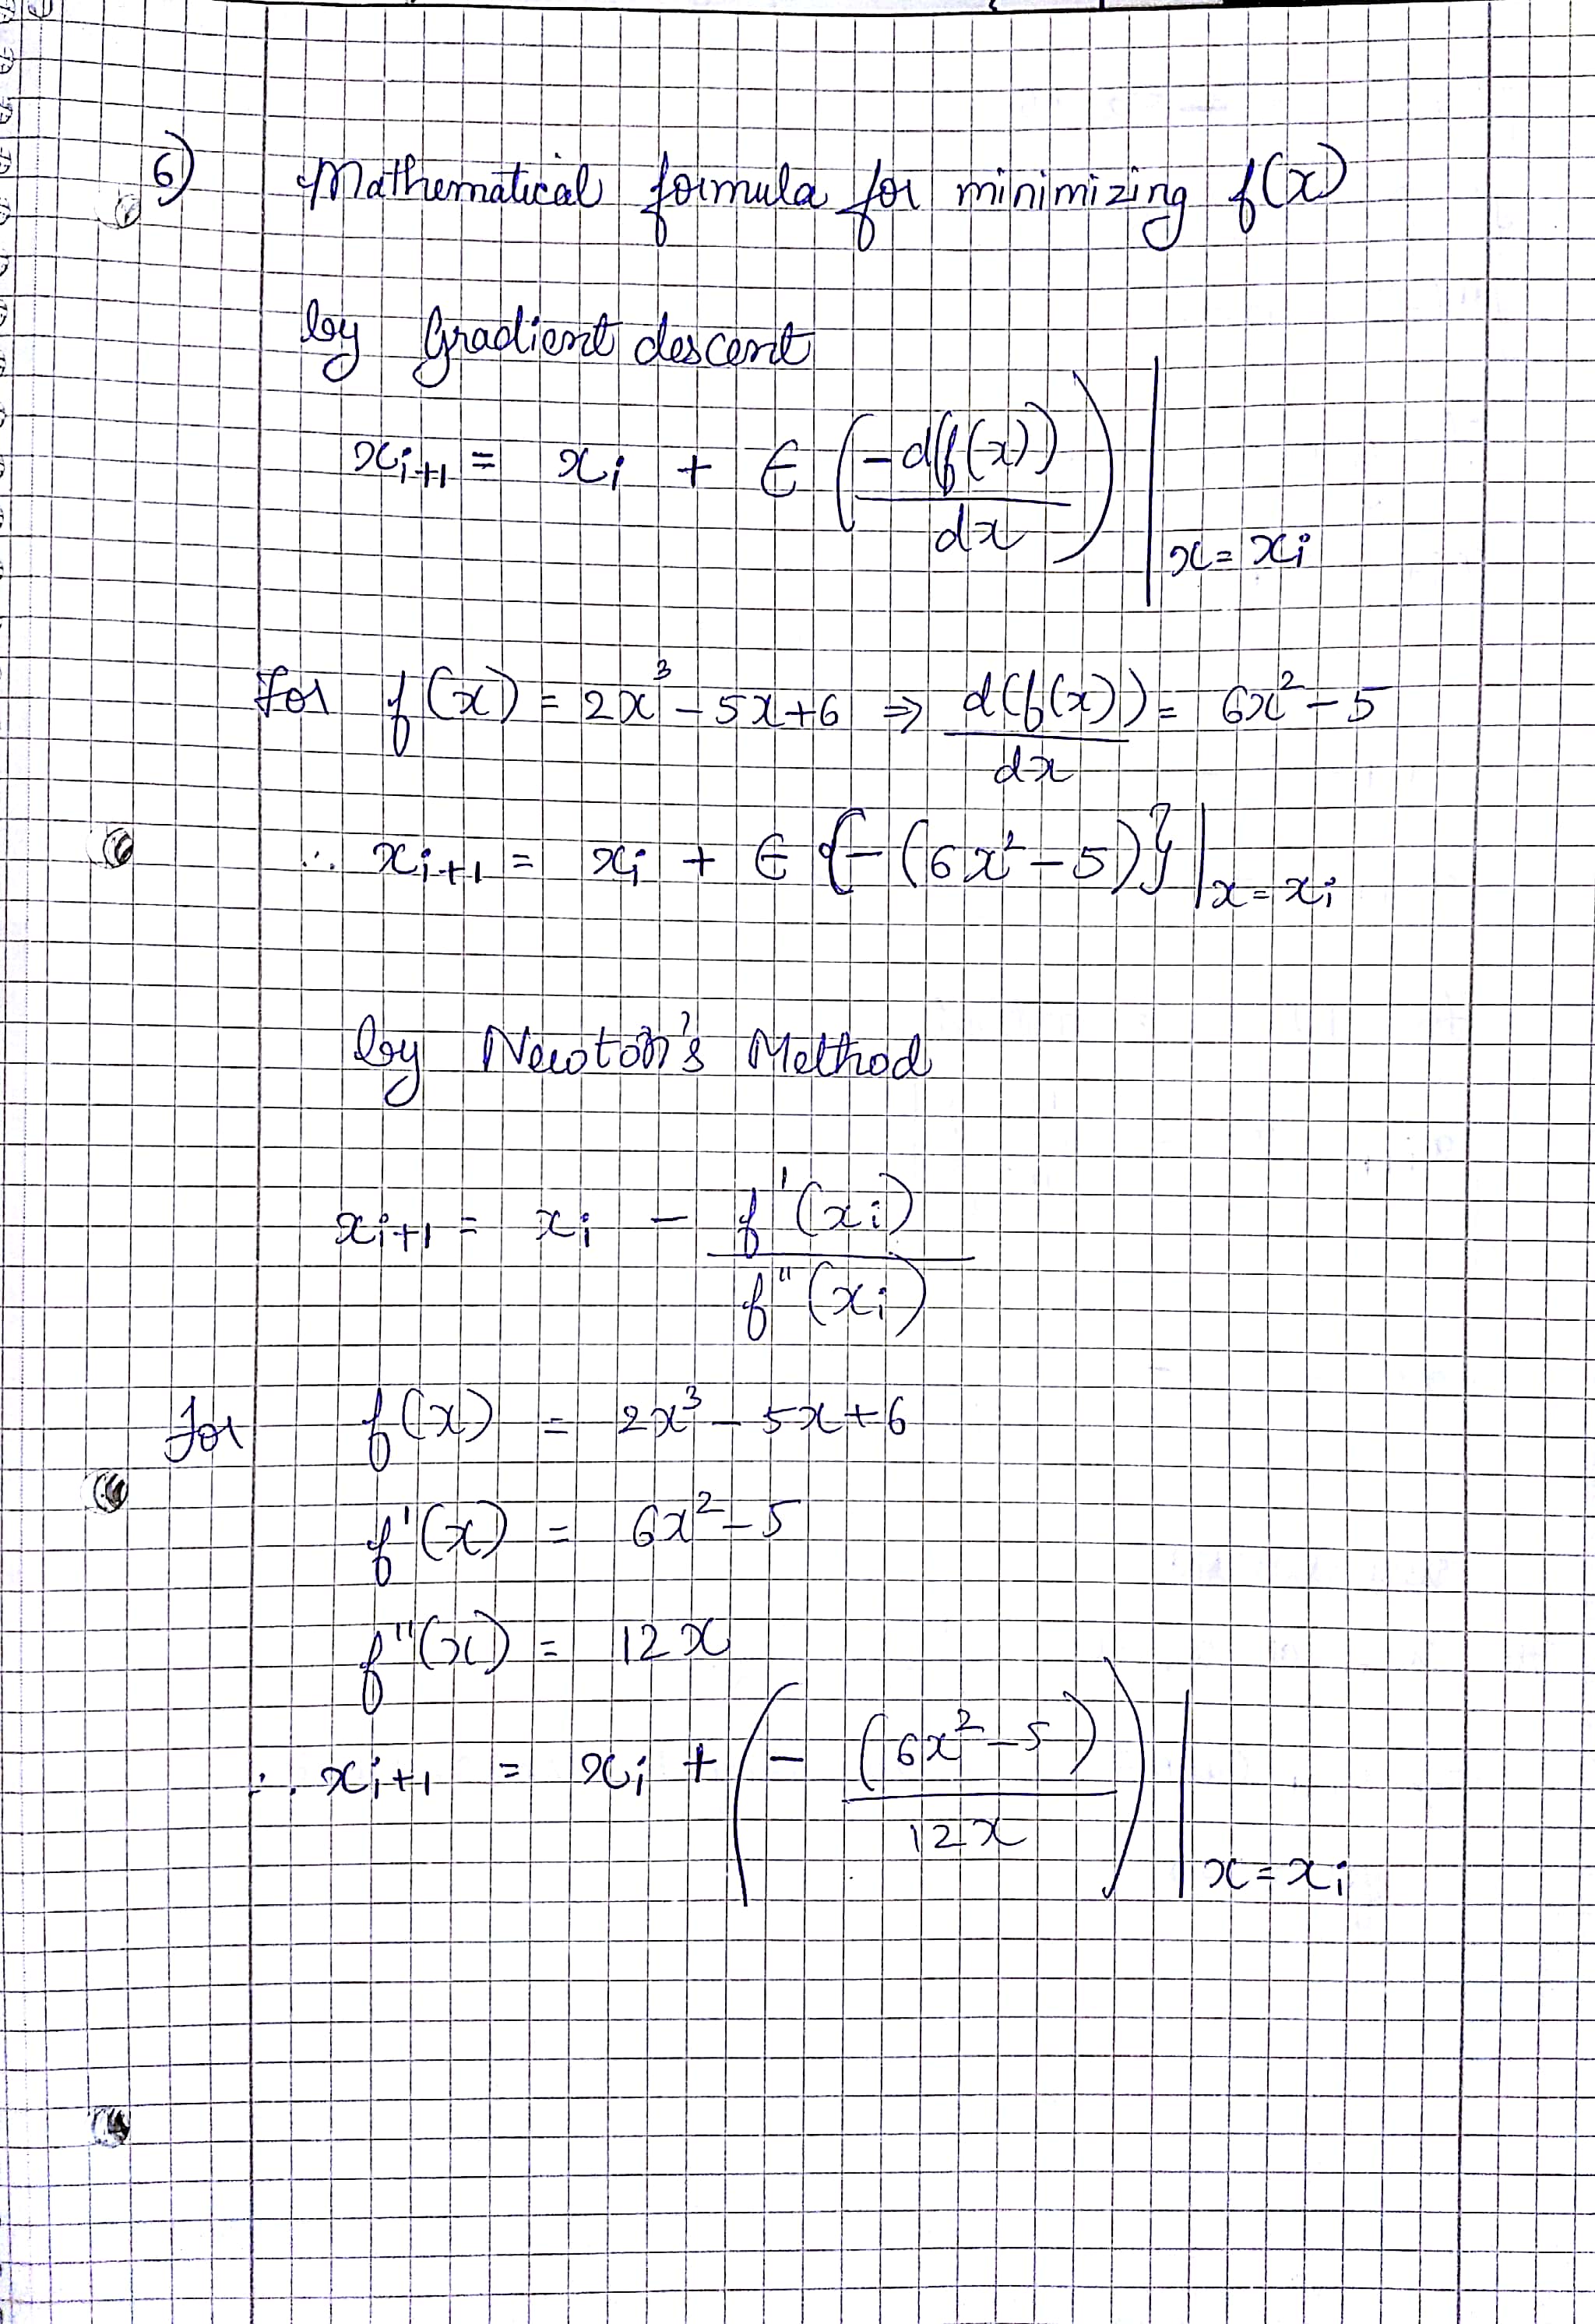 6) Mathematical formula for minimizing f(x)
by Gradient descent
x_{i+1} = x_i + ∈ (-d(f(x))/dx)|_{x=x_i}
For f(x) = 2x³ - 5x + 6 ⇒ d(f(x))/dx = 6x² - 5
∴ x_{i+1} = x_i + ∈ {-(6x² - 5)}|_{x=x_i}
by Newton's Method
x_{i+1} = x_i - f'(x_i)/f''(x_i)
for f(x) = 2x³ - 5x + 6
f'(x) = 6x² - 5
f''(x) = 12x
∴ x_{i+1} = x_i + (- (6x² - 5)/12x)|_{x=x_i}